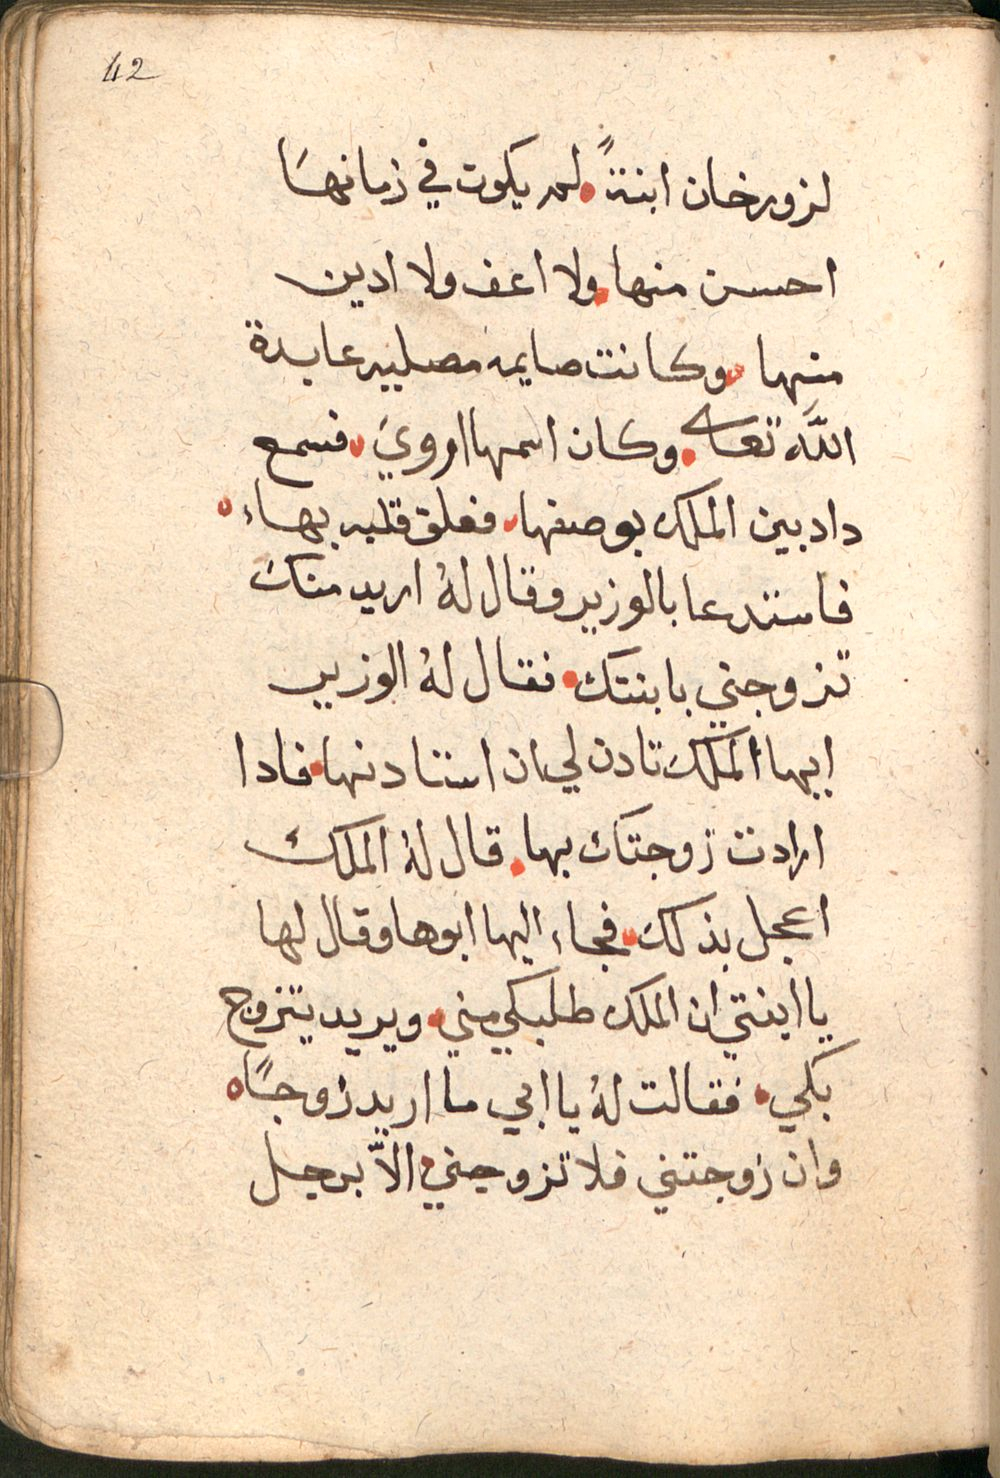 42
لزورخان ابنةً لم يكون في زمانهسًا
احسن منها ولا اعف ولا ادين
منها وكانت صايمه مصليه عابدة
اللَّه تعالى وكان اسمها اروي فسمع
دادبين الملك بوصفها فعلق قلبه بهاء
فاستدعا بالوزير وقال لهُ اريد منك
تزوجني بابنتك فقال لهُ الوزير
ايها الملك تادن لي ان استادنها فادا
ارادت زوجتك بها قال لهُ الملك
اعجل بذلك فجاء اليها ابوها وقال لها
يا ابنتي ان الملك طلبكي مني ويريد يتزوج
بكي فقالت لهُ يا ابي ما اريد زوجًا
وان زوجتني فلا تزوجني الاّ برجل